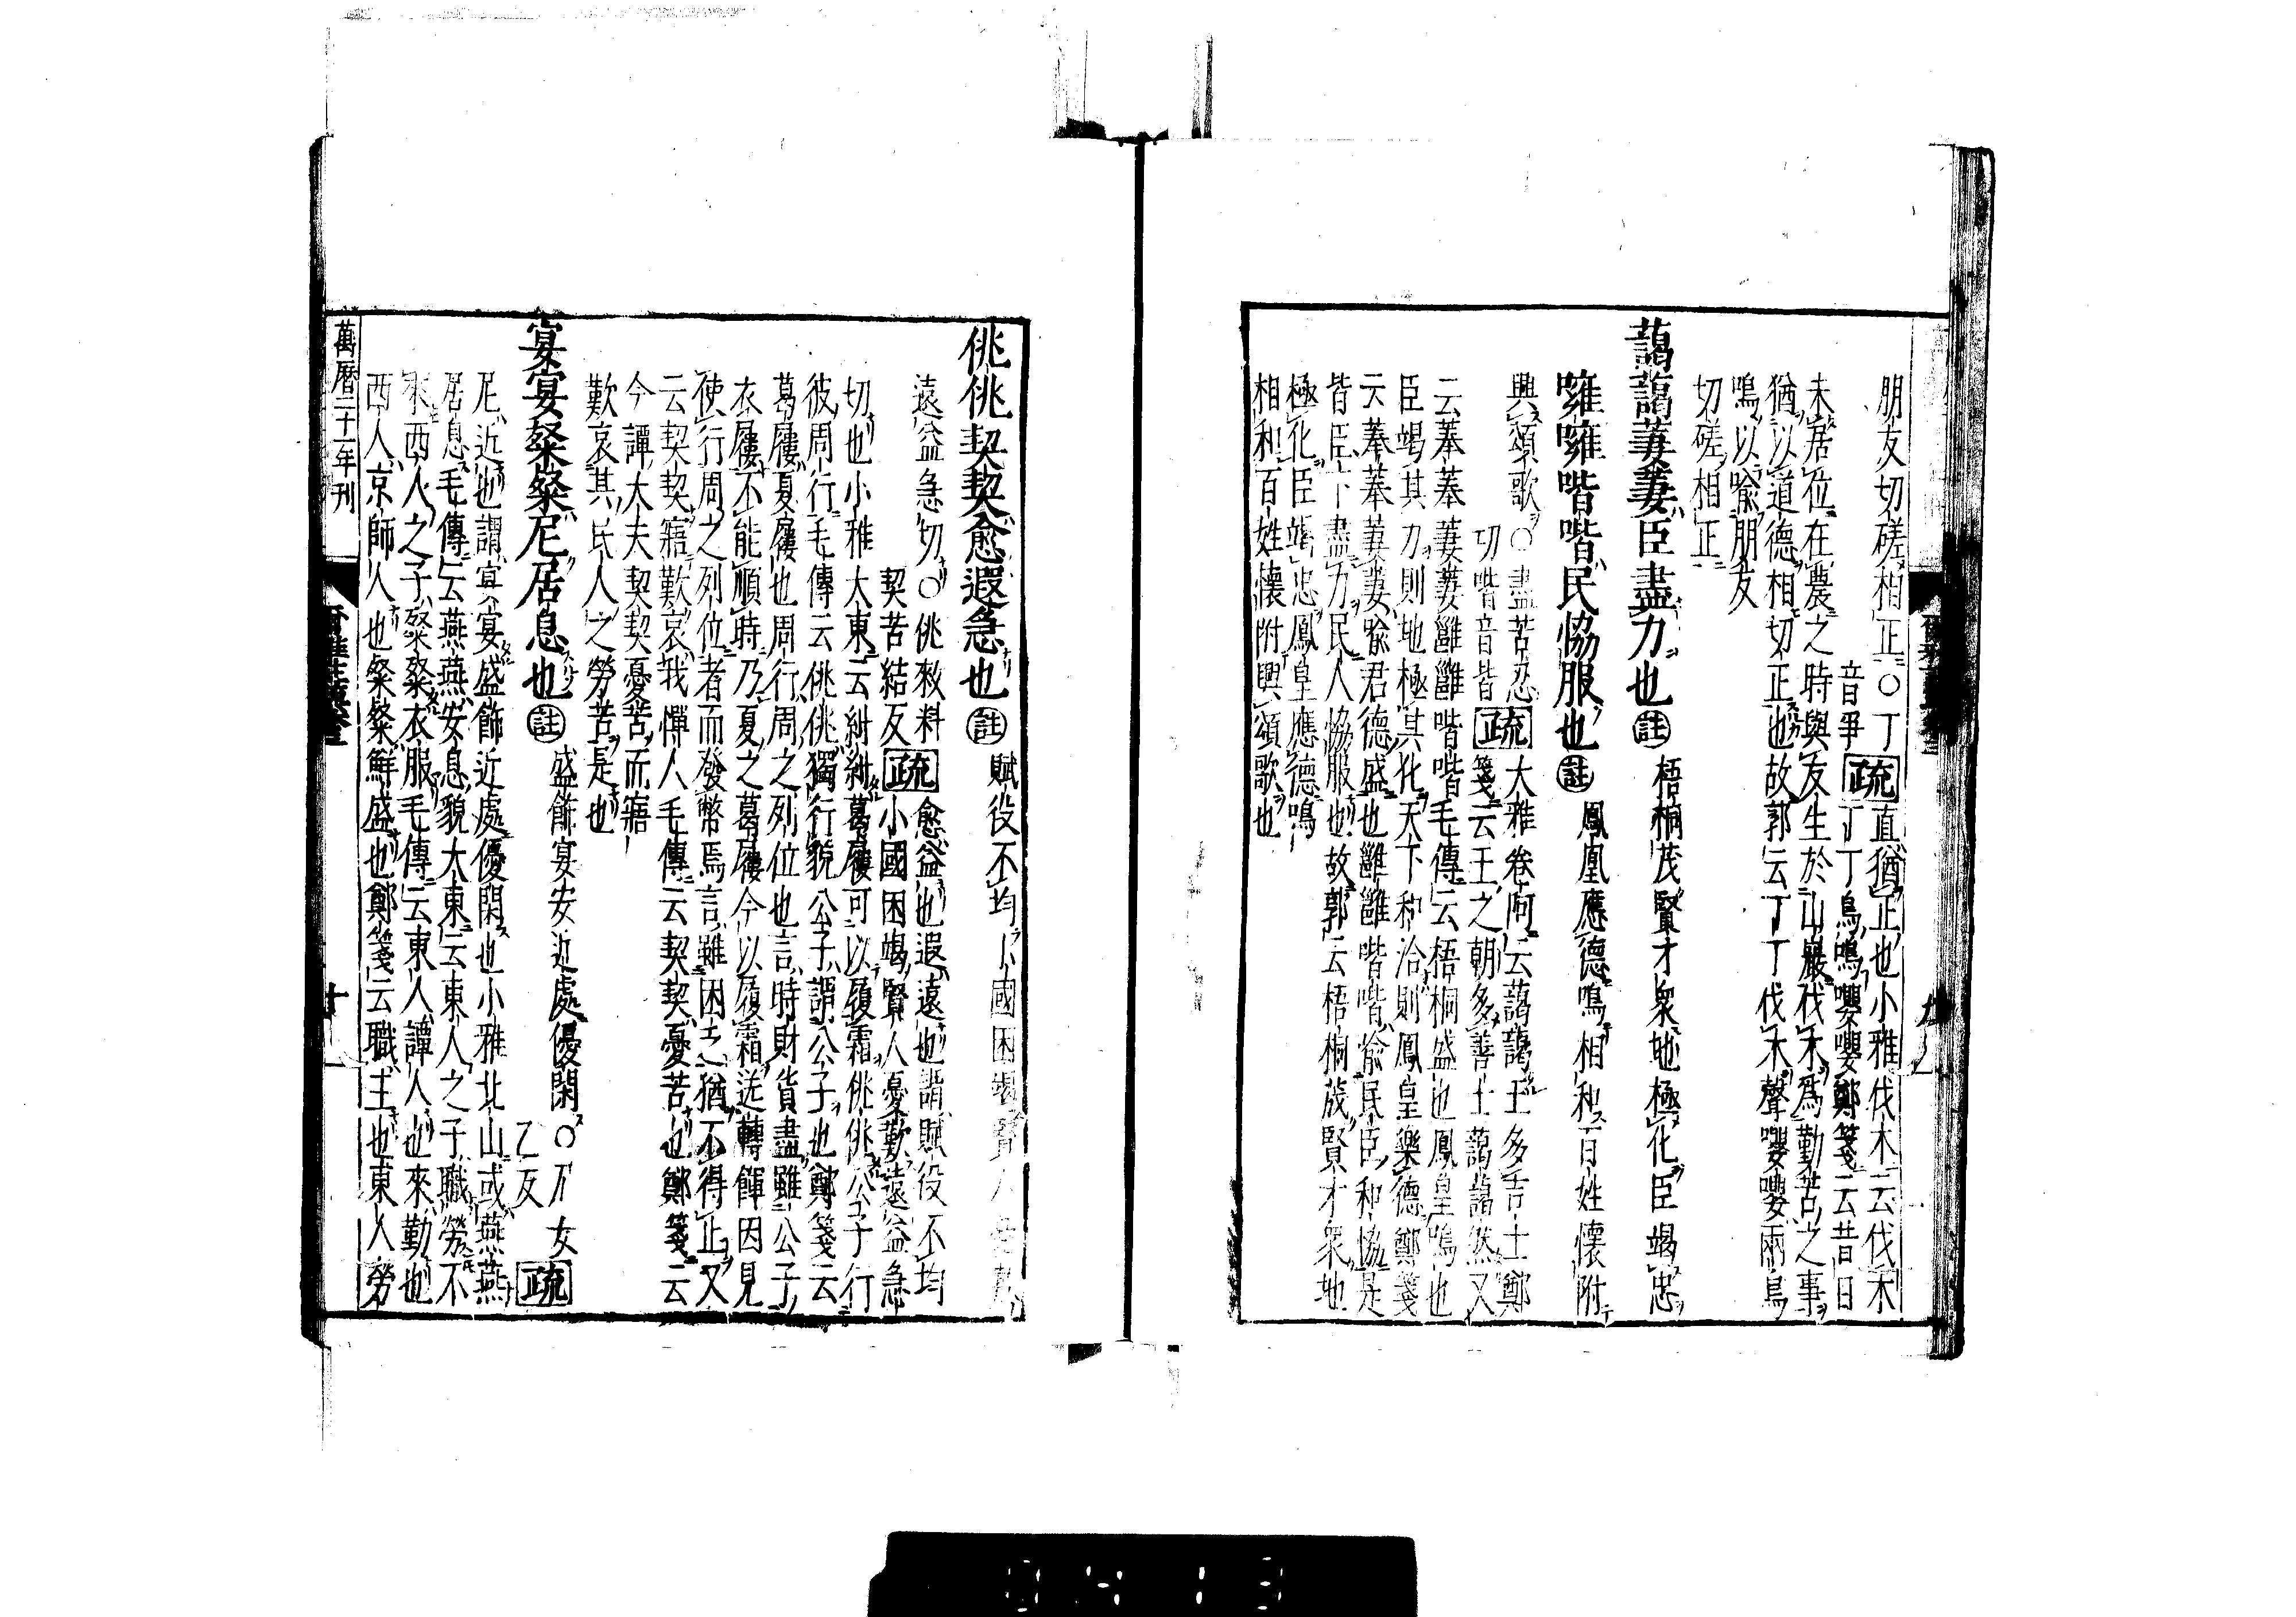 朋友切磋相正○丁
音爭
疏
直猶正也小雅伐木云伐木
丁丁鳥鳴嚶嚶鄭箋云昔日
未居位在農之時與友生於山巖伐木爲勤苦之事
猶以道德相切正也故郭云丁丁伐木聲嚶嚶兩鳥
鳴以喩朋友
切磋相正
藹藹萋萋臣盡力也
註
梧桐茂賢才衆地極化臣竭忠
噰噰喈喈民協服也
註
鳳凰應德鳴相和百姓懷附
興頌歌○盡苦忍
切喈音皆
疏
大雅卷阿云藹藹王多吉士鄭
箋云王之朝多善士藹藹然又
云菶菶萋萋雝雝喈喈毛傳云梧桐盛也鳳皇鳴也
臣竭其力則地極其化天下和洽則鳳皇樂德鄭箋
云菶菶萋萋喩君德盛也雝雝喈喈喩民臣和協是
皆臣下盡力民人協服也故郭云梧桐茂賢才衆地
極化臣竭忠鳳皇應德鳴
相和百姓懷附興頌歌也
佻佻契契愈遐急也
註
賦役不均小國困竭賢人憂歎
遠益急切○佻敕料
契苦結反
疏
愈益也遐遠也謂賦役不均
小國困竭賢人憂歎遠益急
切也小雅大東云糾糾葛屨可以履霜佻佻公子行
彼周行毛傳云佻佻獨行貌公子譚公子也鄭箋云
葛屨夏屨也周行周之列位也言時財貨盡雖公子
衣屨不能順時乃夏之葛屨今以履霜送轉餫因見
使行周之列位者而發幣焉言雖困乏猶不得止又
云契契寤歎哀我憚人毛傳云契契憂苦也鄭箋云
今譚大夫契契憂苦而寤
歎哀其民人之勞苦是也
宴宴粲粲尼居息也
註
盛飾宴安近處優閑○尼女
乙反
疏
尼近也謂宴宴盛飾近處優閑也小雅北山或燕燕
居息毛傳云燕燕安息貌大東云東人之子職勞不
來西人之子粲粲衣服毛傳云東人譚人也來勤也
西人京師人也粲粲鮮盛也鄭箋云職主也東人勞
萬曆二十一年刊